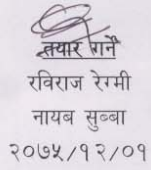 तयार गर्ने
रविराज रेग्मी
नायब सुब्बा
२०७५/१२/०१